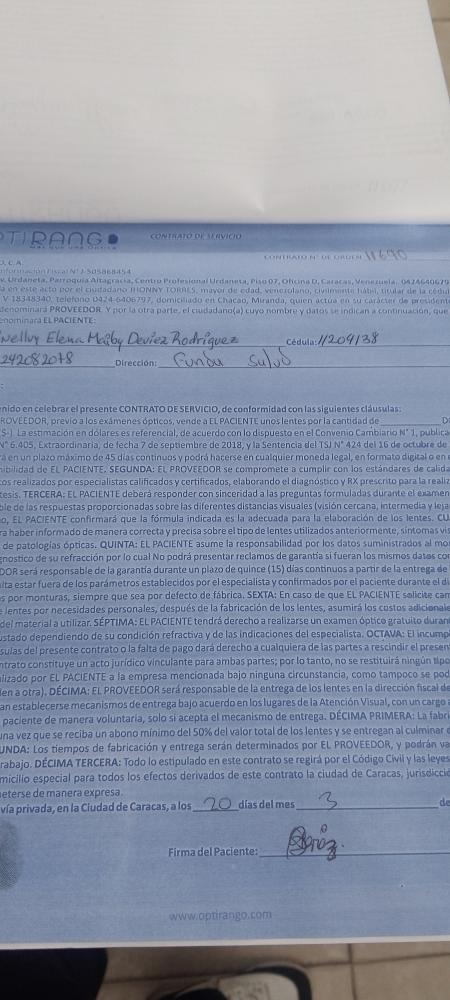 OPTIRANGO
CONTRATO DE SERVICIO
CONTRATO N° DE ORDEN 11690
O, C.A.
nformación Fiscal N° J-505868454
v. Urdaneta, Parroquia Altagracia, Centro Profesional Urdaneta, Piso 07, Oficina D, Caracas, Venezuela. 0424640679
a en este acto por el ciudadano JHONNY TORRES, mayor de edad, venezolano, civilmente hábil, titular de la cédul
V-18348340, teléfono 0424-6406797, domiciliado en Chacao, Miranda, quien actúa en su carácter de presidente
denominará PROVEEDOR. Y por la otra parte, el ciudadano(a) cuyo nombre y datos se indican a continuación, que
enominará EL PACIENTE:
Elena Maiby Rodríguez Cédula: 11209138
242082078 Dirección: Funda Salud
:
enido en celebrar el presente CONTRATO DE SERVICIO, de conformidad con las siguientes cláusulas:
ROVEEDOR, previo a los exámenes ópticos, vende a EL PACIENTE unos lentes por la cantidad de
S-). La estimación en dólares es referencial, de acuerdo con lo dispuesto en el Convenio Cambiario N° 1, publica
N° 6.405, Extraordinaria, de fecha 7 de septiembre de 2018, y la Sentencia del TSJ N° 424 del 16 de octubre de
rá en un plazo máximo de 45 días continuos y podrá hacerse en cualquier moneda legal, en formato digital o en e
nibilidad de EL PACIENTE. SEGUNDA: EL PROVEEDOR se compromete a cumplir con los estándares de calida
cos realizados por especialistas calificados y certificados, elaborando el diagnóstico y RX prescrito para la realiz
tesis. TERCERA: EL PACIENTE deberá responder con sinceridad a las preguntas formuladas durante el examen
ble de las respuestas proporcionadas sobre las diferentes distancias visuales (visión cercana, intermedia y leja
o, EL PACIENTE confirmará que la fórmula indicada es la adecuada para la elaboración de los lentes. CU
ra haber informado de manera correcta y precisa sobre el tipo de lentes utilizados anteriormente, síntomas vis
de patologías ópticas. QUINTA: EL PACIENTE asume la responsabilidad por los datos suministrados al mo
gnostico de su refracción por lo cual No podrá presentar reclamos de garantía si fueran los mismos datos con
DOR será responsable de la garantía durante un plazo de quince (15) días continuos a partir de la entrega de
lta estar fuera de los parámetros establecidos por el especialista y confirmados por el paciente durante el di
s por monturas, siempre que sea por defecto de fábrica. SEXTA: En caso de que EL PACIENTE solicite cam
e lentes por necesidades personales, después de la fabricación de los lentes, asumirá los costos adicionale
del material a utilizar. SÉPTIMA: EL PACIENTE tendrá derecho a realizarse un examen óptico gratuito duran
ustado dependiendo de su condición refractiva y de las indicaciones del especialista. OCTAVA: El incump
sulas del presente contrato o la falta de pago dará derecho a cualquiera de las partes a rescindir el presen
ntrato constituye un acto jurídico vinculante para ambas partes; por lo tanto, no se restituirá ningún tipo
lizado por EL PACIENTE a la empresa mencionada bajo ninguna circunstancia, como tampoco se pod
den a otra). DÉCIMA: EL PROVEEDOR será responsable de la entrega de los lentes en la dirección fiscal de
an establecerse mecanismos de entrega bajo acuerdo en los lugares de la Atención Visual, con un cargo a
paciente de manera voluntaria, solo si acepta el mecanismo de entrega. DÉCIMA PRIMERA: La fabri
una vez que se reciba un abono mínimo del 50% del valor total de los lentes y se entregan al culminar e
UNDA: Los tiempos de fabricación y entrega serán determinados por EL PROVEEDOR, y podrán va
rabajo. DÉCIMA TERCERA: Todo lo estipulado en este contrato se regirá por el Código Civil y las leyes
micilio especial para todos los efectos derivados de este contrato la ciudad de Caracas, jurisdicció
eterse de manera expresa.
vía privada, en la Ciudad de Caracas, a los 20 días del mes 3 de
Firma del Paciente:
www.optirango.com